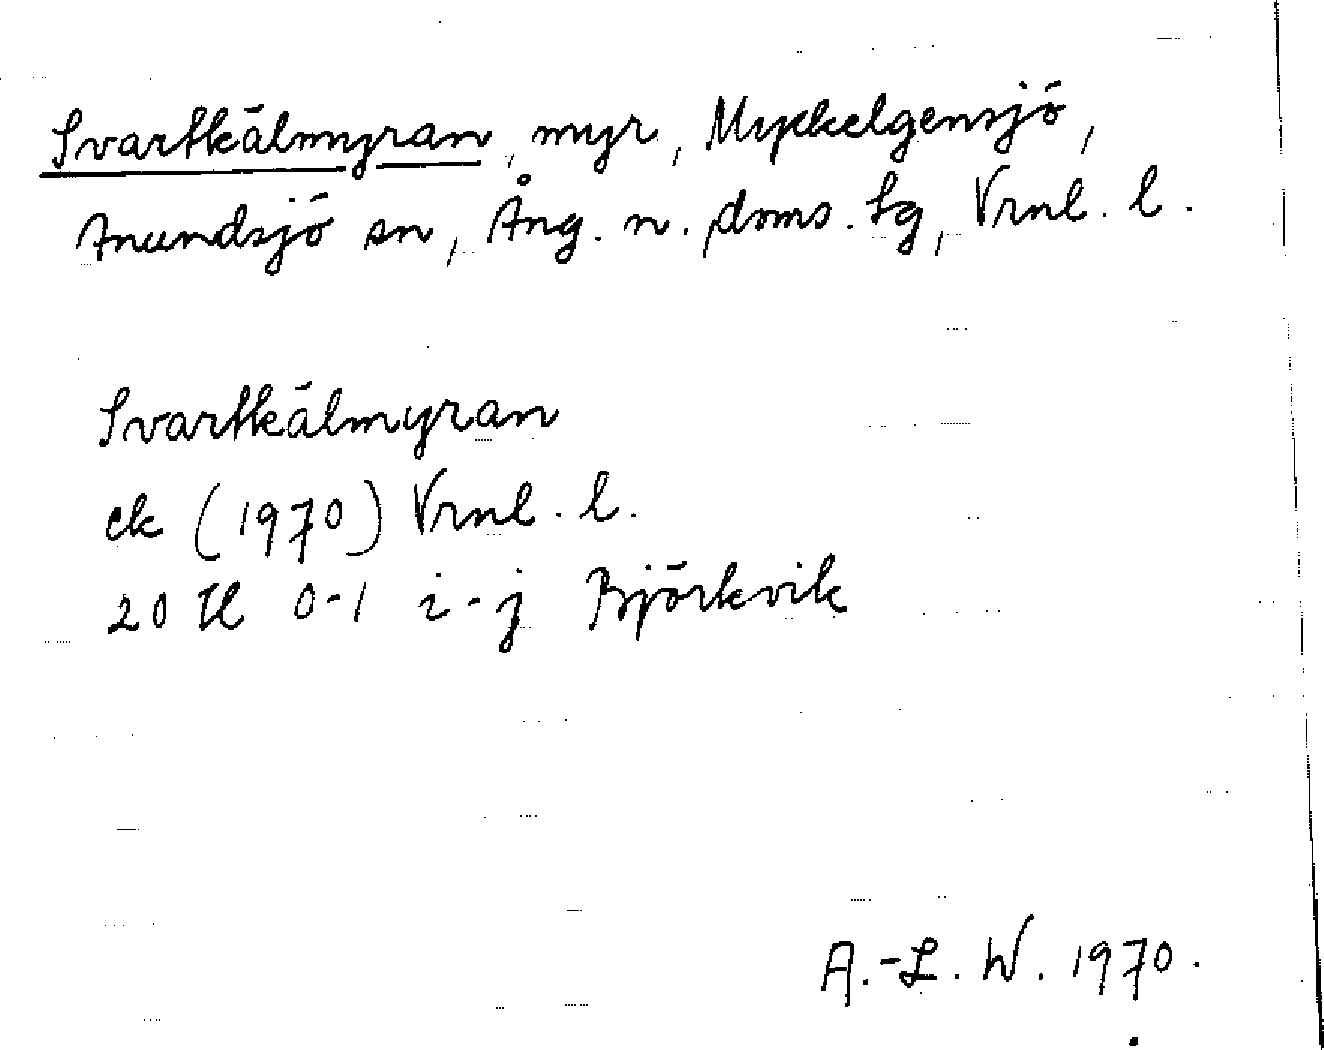 Svartkälmyran, myr, Myckelgensjö,
Anundsjö sn, Ång. n. doms. tg, Vrnl. l.
Svartkälmyran
ek (1970) Vrnl. l.
20 H 0-1 i-j Björkvik
A.-L. W. 1970.